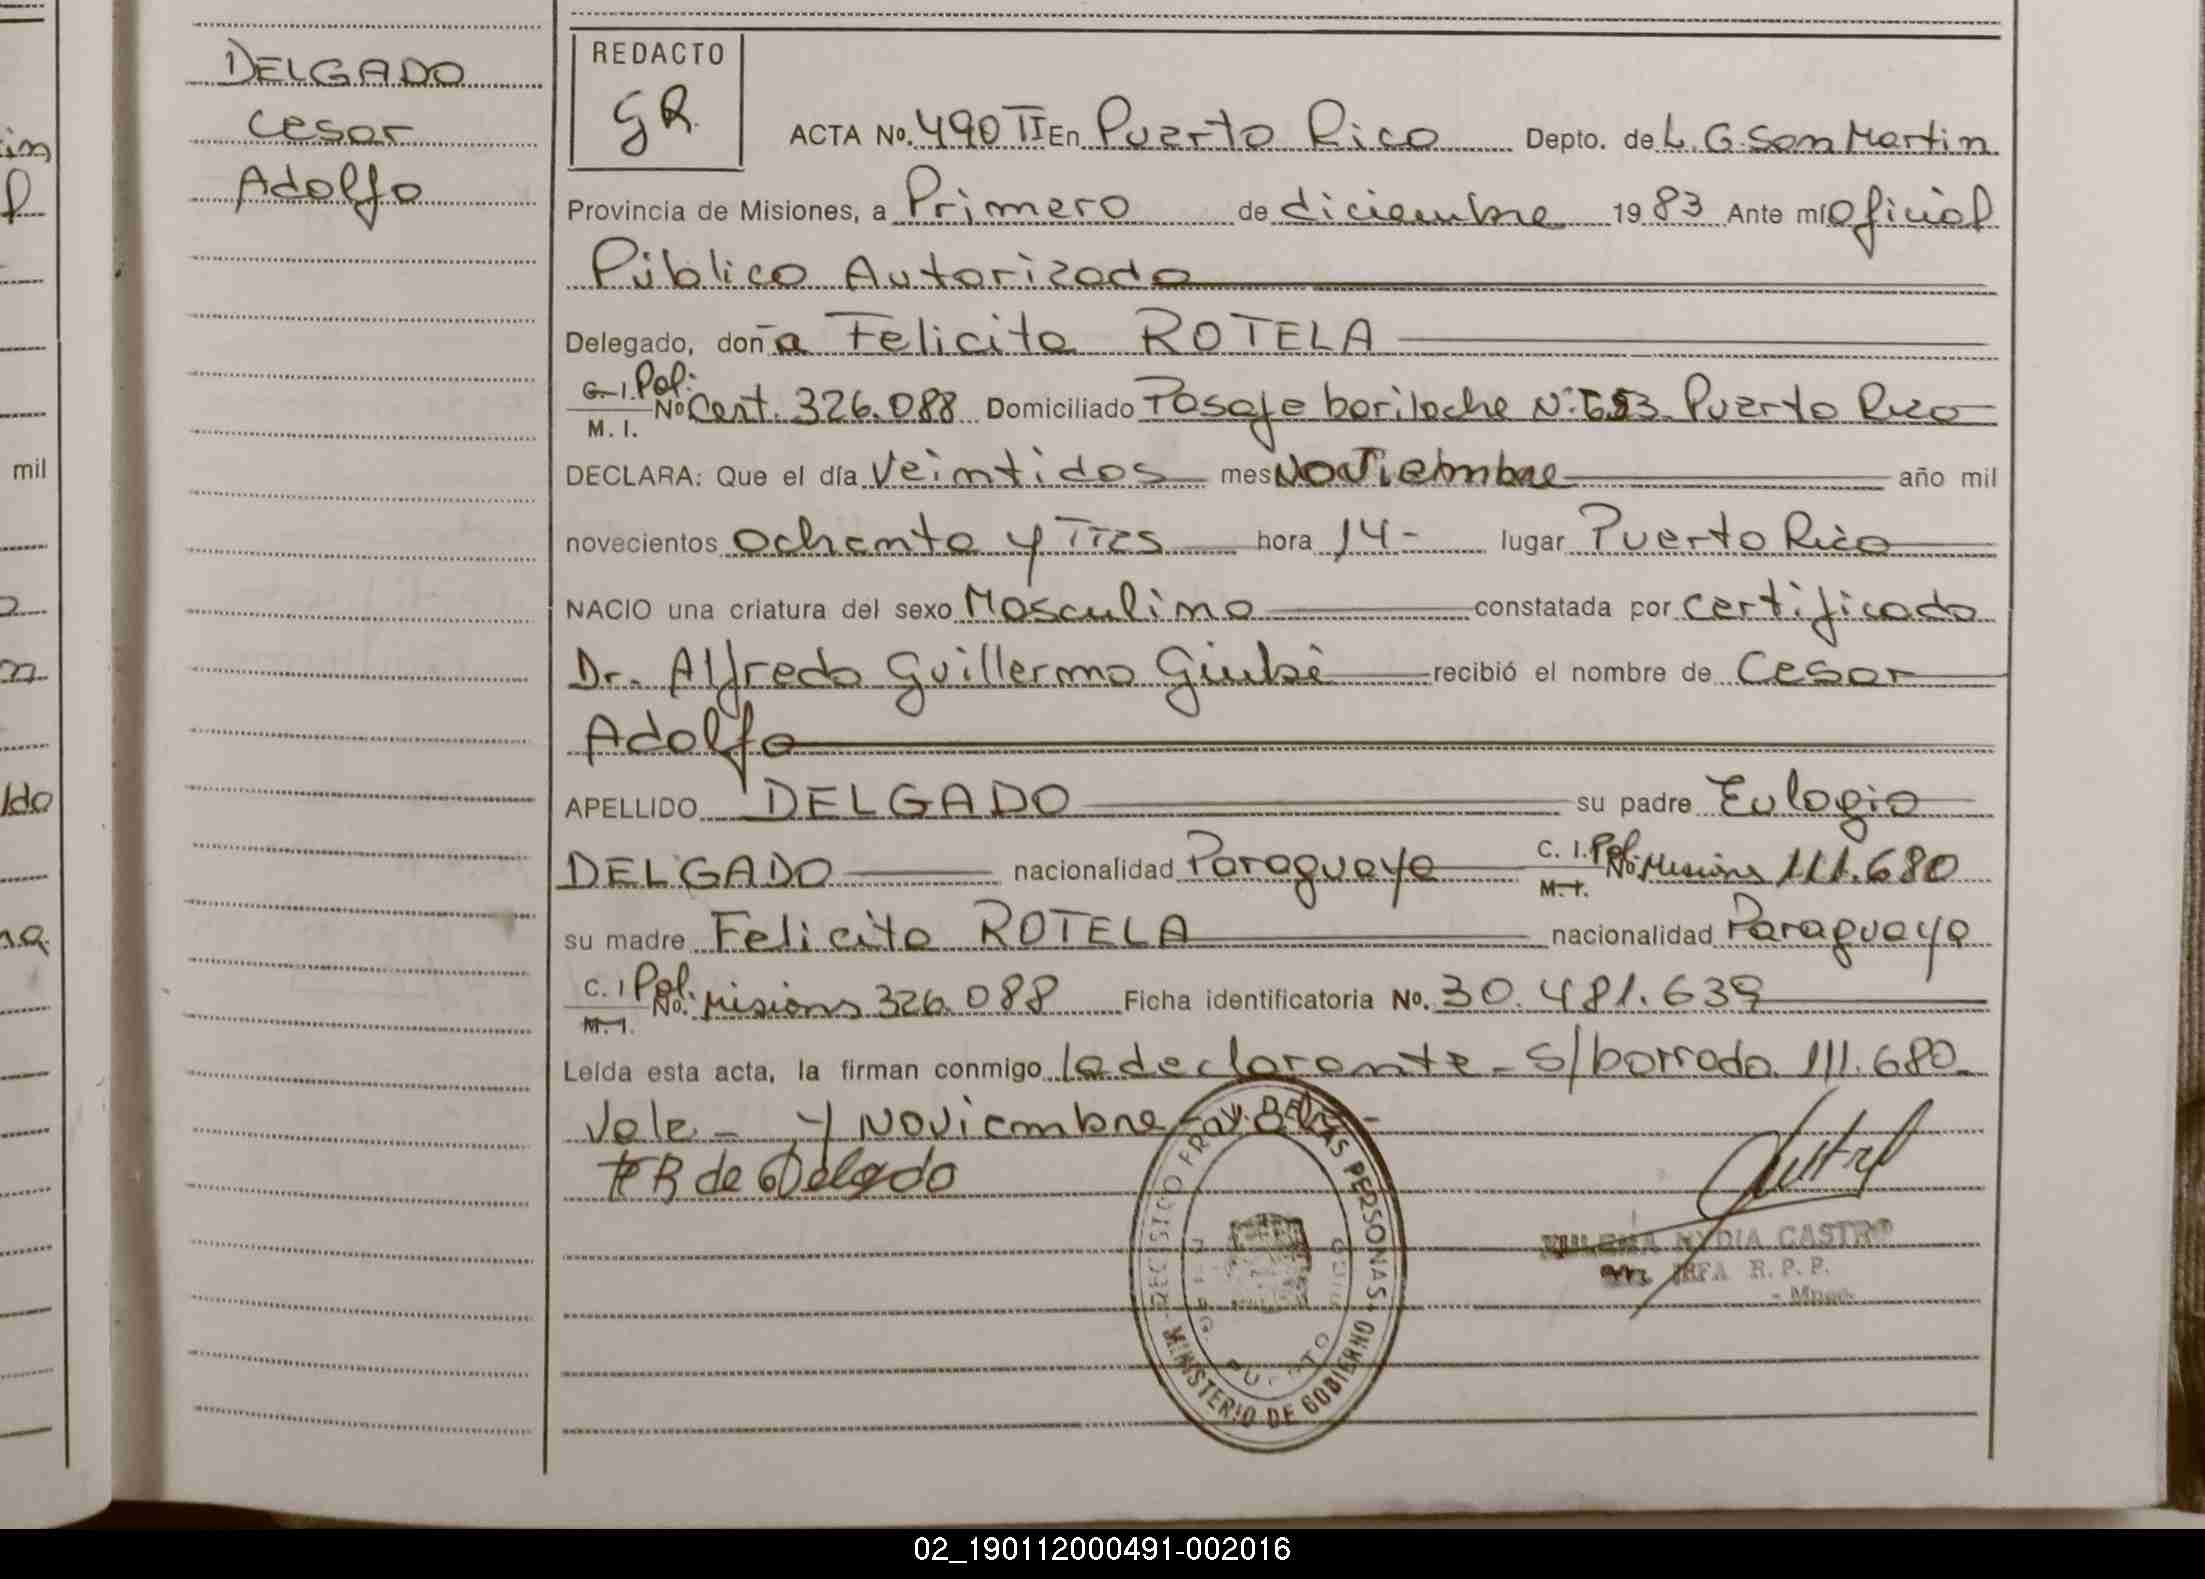 DELGADO
Cesar
Adolfo
REDACTO
GR.
ACTA Nº. 490 II En Puerto Rico Depto. de L. G. San Martin
Provincia de Misiones, a Primero de diciembre 1983 Ante mí Oficial
Público Autorizado
Delegado, doña Felicita ROTELA
C. I. Pol.
M. I. Nº Cert. 326.088 Domiciliado Pasaje bariloche Nº 653 Puerto Rico
DECLARA: Que el día Veintidos mes Noviembre año mil
novecientos Ochenta y Tres hora 14- lugar Puerto Rico
NACIO una criatura del sexo Masculino constatada por certificado
Dr. Alfredo Guillermo recibió el nombre de Cesar
Adolfo
APELLIDO DELGADO su padre Eulogio
DELGADO nacionalidad Paraguaya C. I. Pol. M. I. Nº Misions 111.680
su madre Felicita ROTELA nacionalidad Paraguaya
C. I Pol. M. I. Nº. Misions 326.088 Ficha identificatoria Nº. 30.481.639
Leída esta acta, la firman conmigo la declarante - S/borrado 111.680
Vale - y Noviembre
de Delgado
NYDIA CASTRO
JEFA R. P. P.
- Mnes.
DE LAS PERSONAS
MINISTERIO DE GOBIERNO
PUERTO
im
mil
ldo
na
02_190112000491-002016